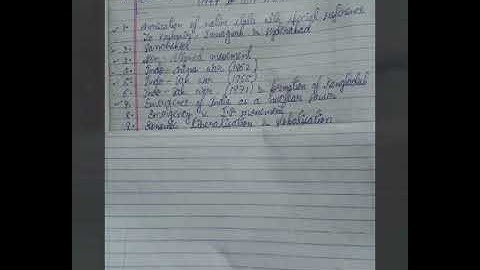 1. Annexation of native states with special reference
to Kashmir, Junagarh & Hyderabad
2. Panchsheel
3. Non Aligned movement
4. Indo-china war (1962)
5. Indo-Pak war (1965)
6. Indo-Pak war (1971) & formation of Bangladesh
7. Emergence of India as a nuclear power
8. Emergency & movement
9. Liberalisation & Globalisation